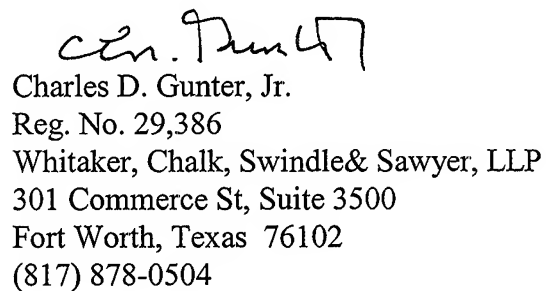 Charles D. Gunter, Jr.
Reg. No. 29,386
Whitaker, Chalk, Swindle& Sawyer, LLP
301 Commerce St, Suite 3500
Fort Worth, Texas  76102
(817) 878-0504